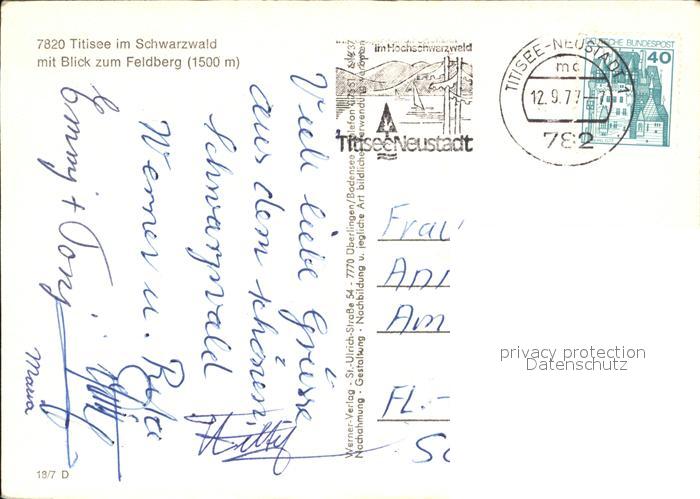 7820 Titisee im Schwarzwald
mit Blick zum Feldberg (1500 m)
im Hochschwarzwald
Titisee Neustadt
TITISEE-NEUSTADT 1
mc
12.9.77-
782
DEUTSCHE BUNDESPOST
40
Viele liebe Grüsse
aus dem schönen
Schwarzwald
Werner u.
Emmy + Tony
Maria
Werner-Verlag - St.-Ulrich-Straße 54 - 7770 Überlingen/Bodensee
Nachahmung - Gestaltung - Nachbildung u. jegliche Art bildlicher Verwendung verboten
Frau
Ann
Am
FL.-
Sc
privacy protection
Datenschutz
18/7 D